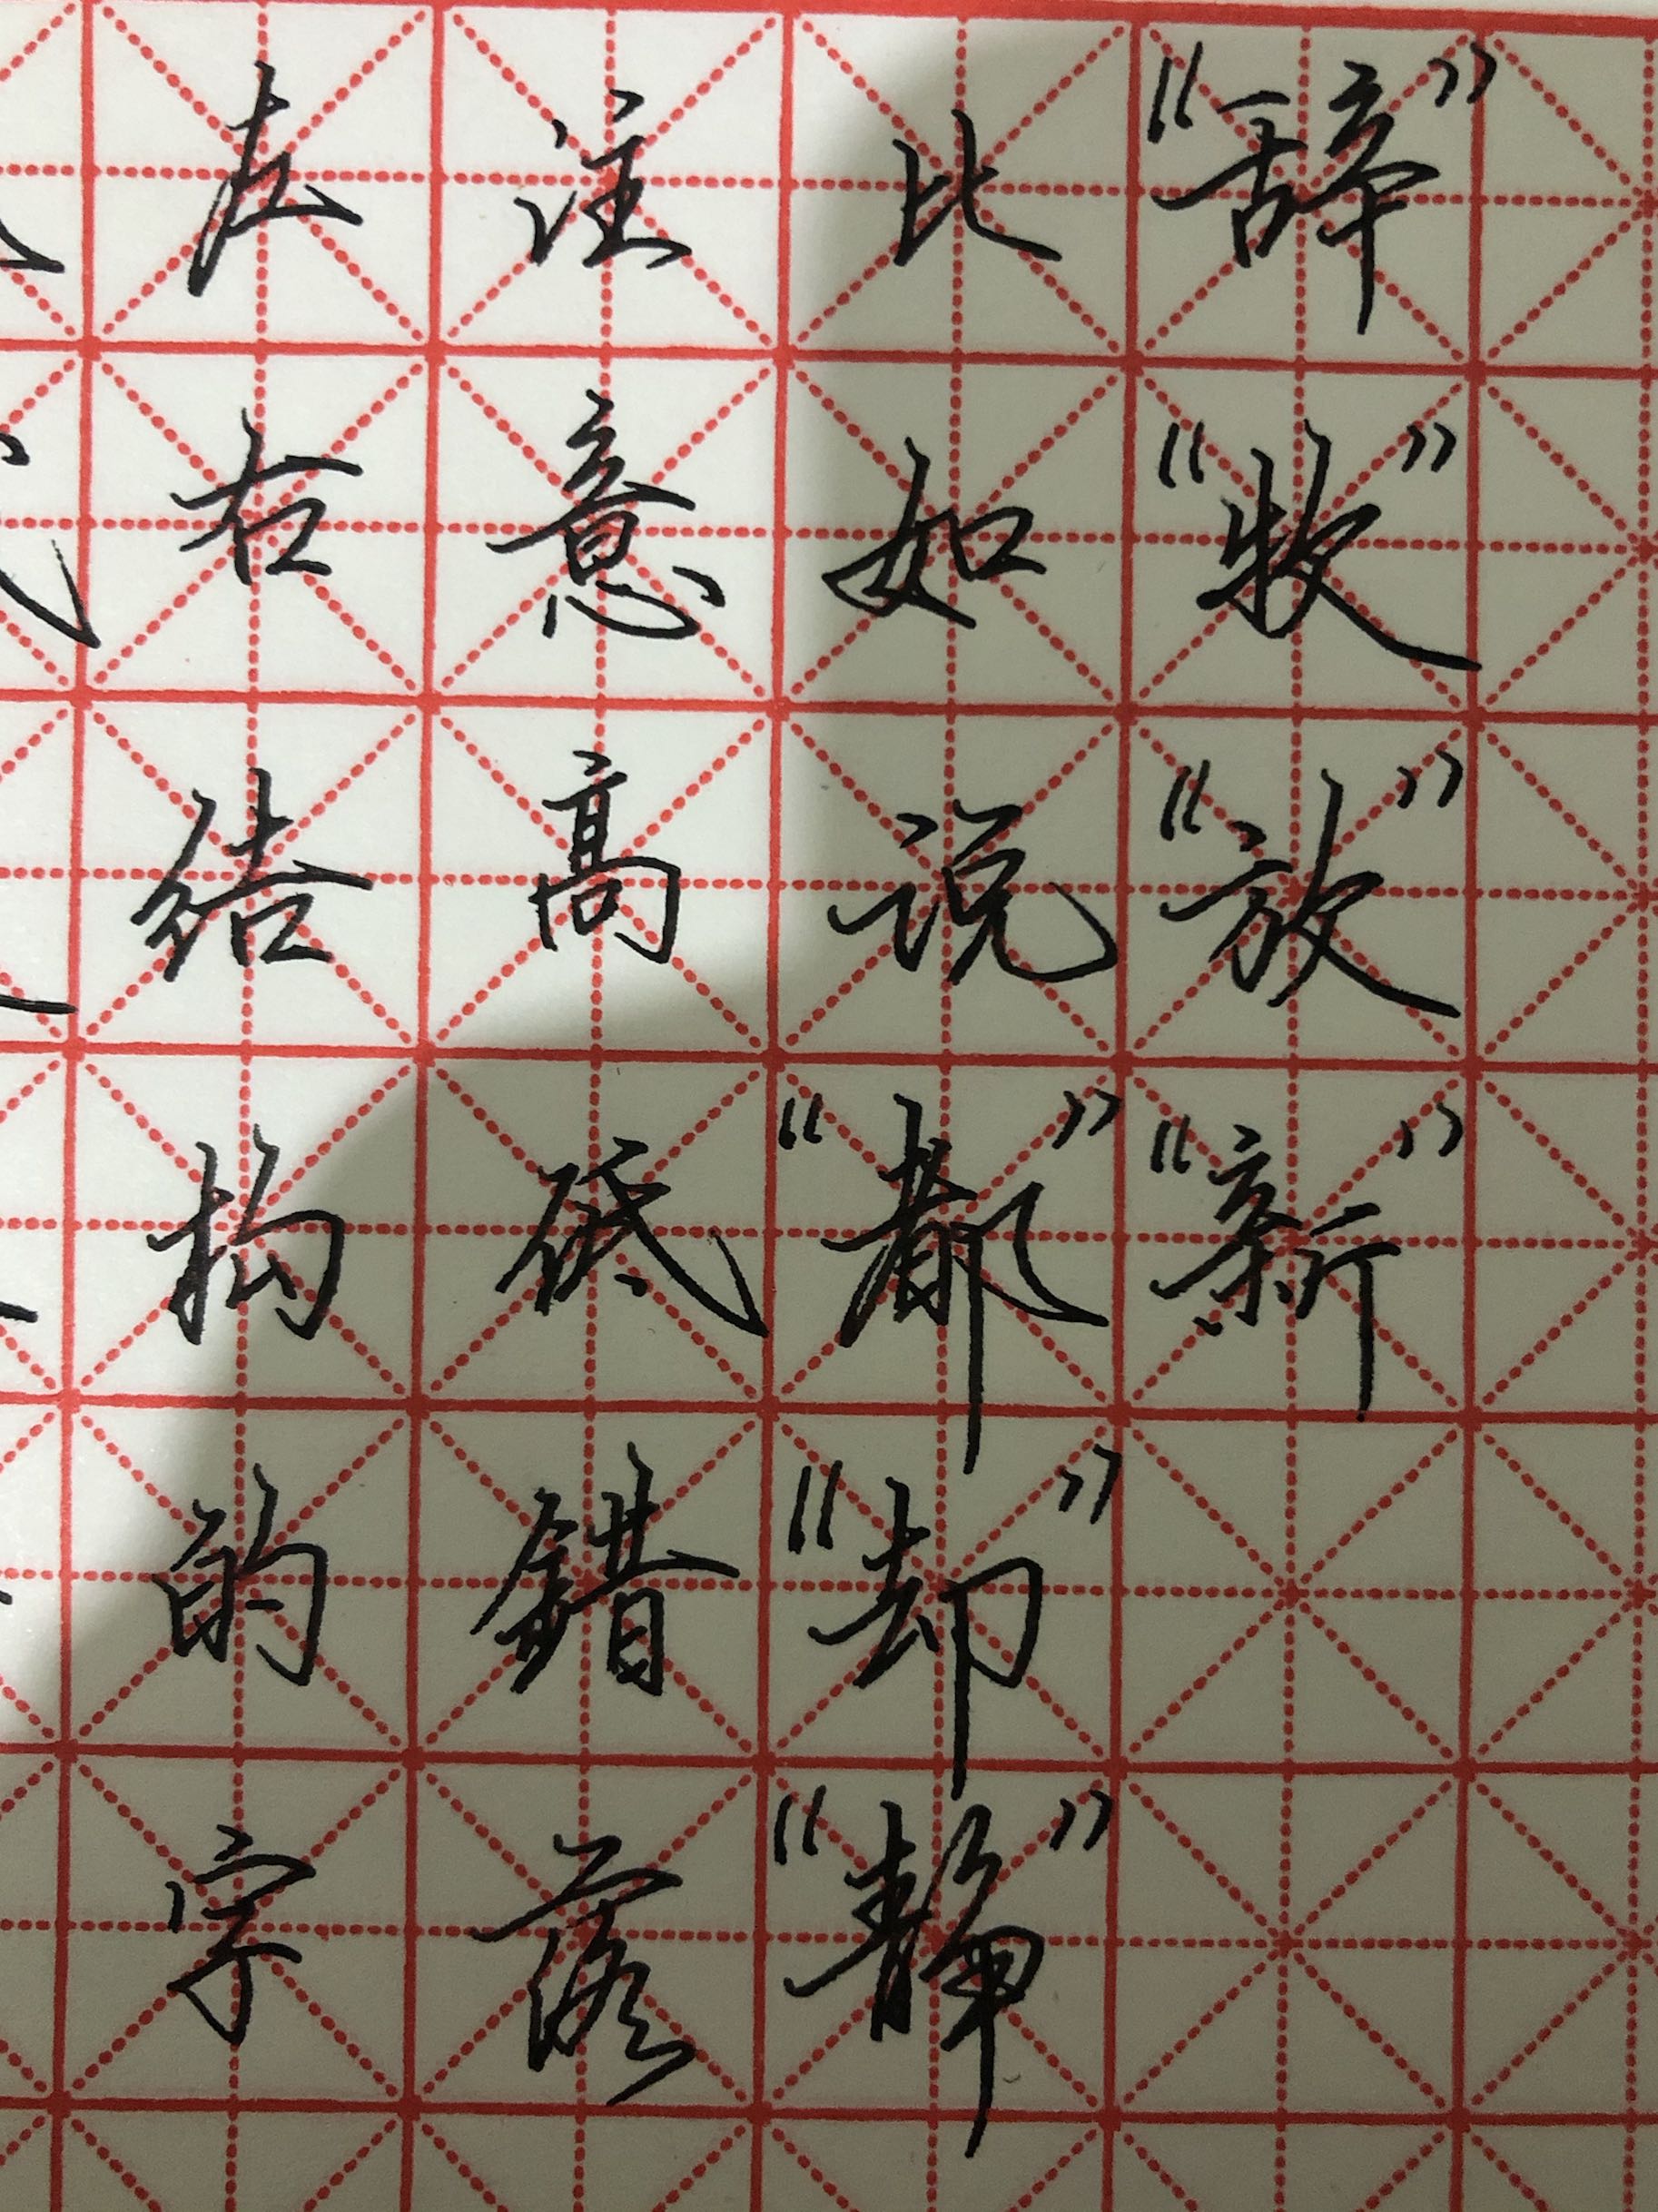 左右结构的字
注意高低错落
比如说“都”“却”“静”
“辞”“牧”“放”“新”